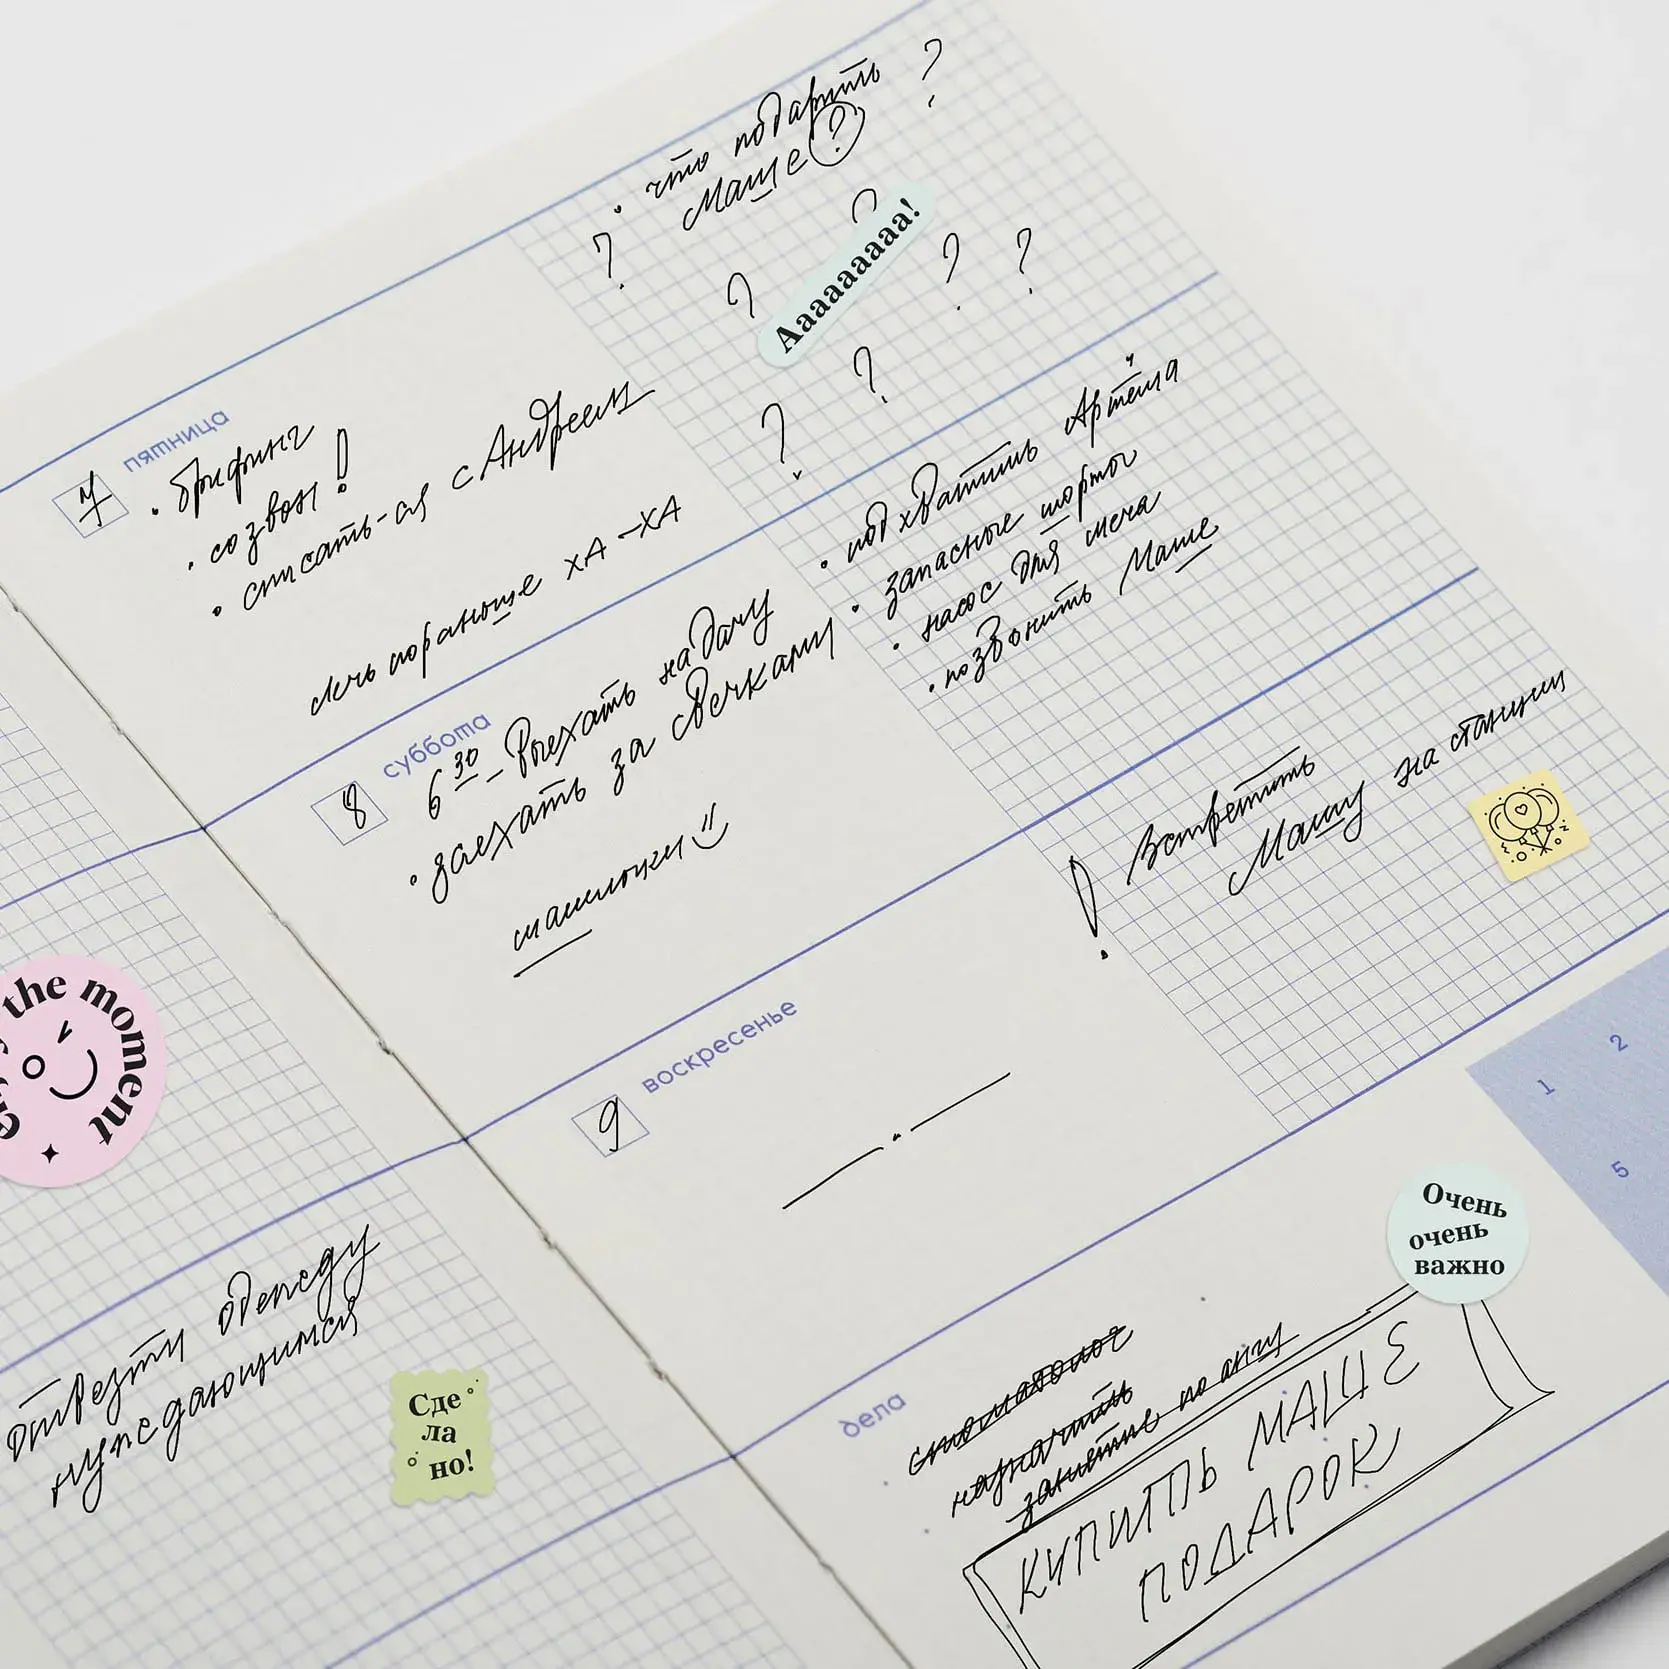 • что подарить ?
Маше ?
? ? ? ? ? ? ?
Аааааааааа!
пятница
7
• брифинг
• созвон !
• списать-ся с Андреем
лечь пораньше ХА-ХА
суббота
8
6 30 – Выехать на дачу
• заехать за свечками
машлочки
• подхватить Артёма
• запасные шорты
• насос для мяча
• позвонить Маше
воскресенье
9
! Встретить
Машу на станции
the moment
отвезти одежду
нуждающимся
Сде
ла
но!
1 2
5
Очень
очень
важно
дела
стоматолог
назначить
занятие по англ
КУПИТЬ МАШЕ
ПОДАРОК